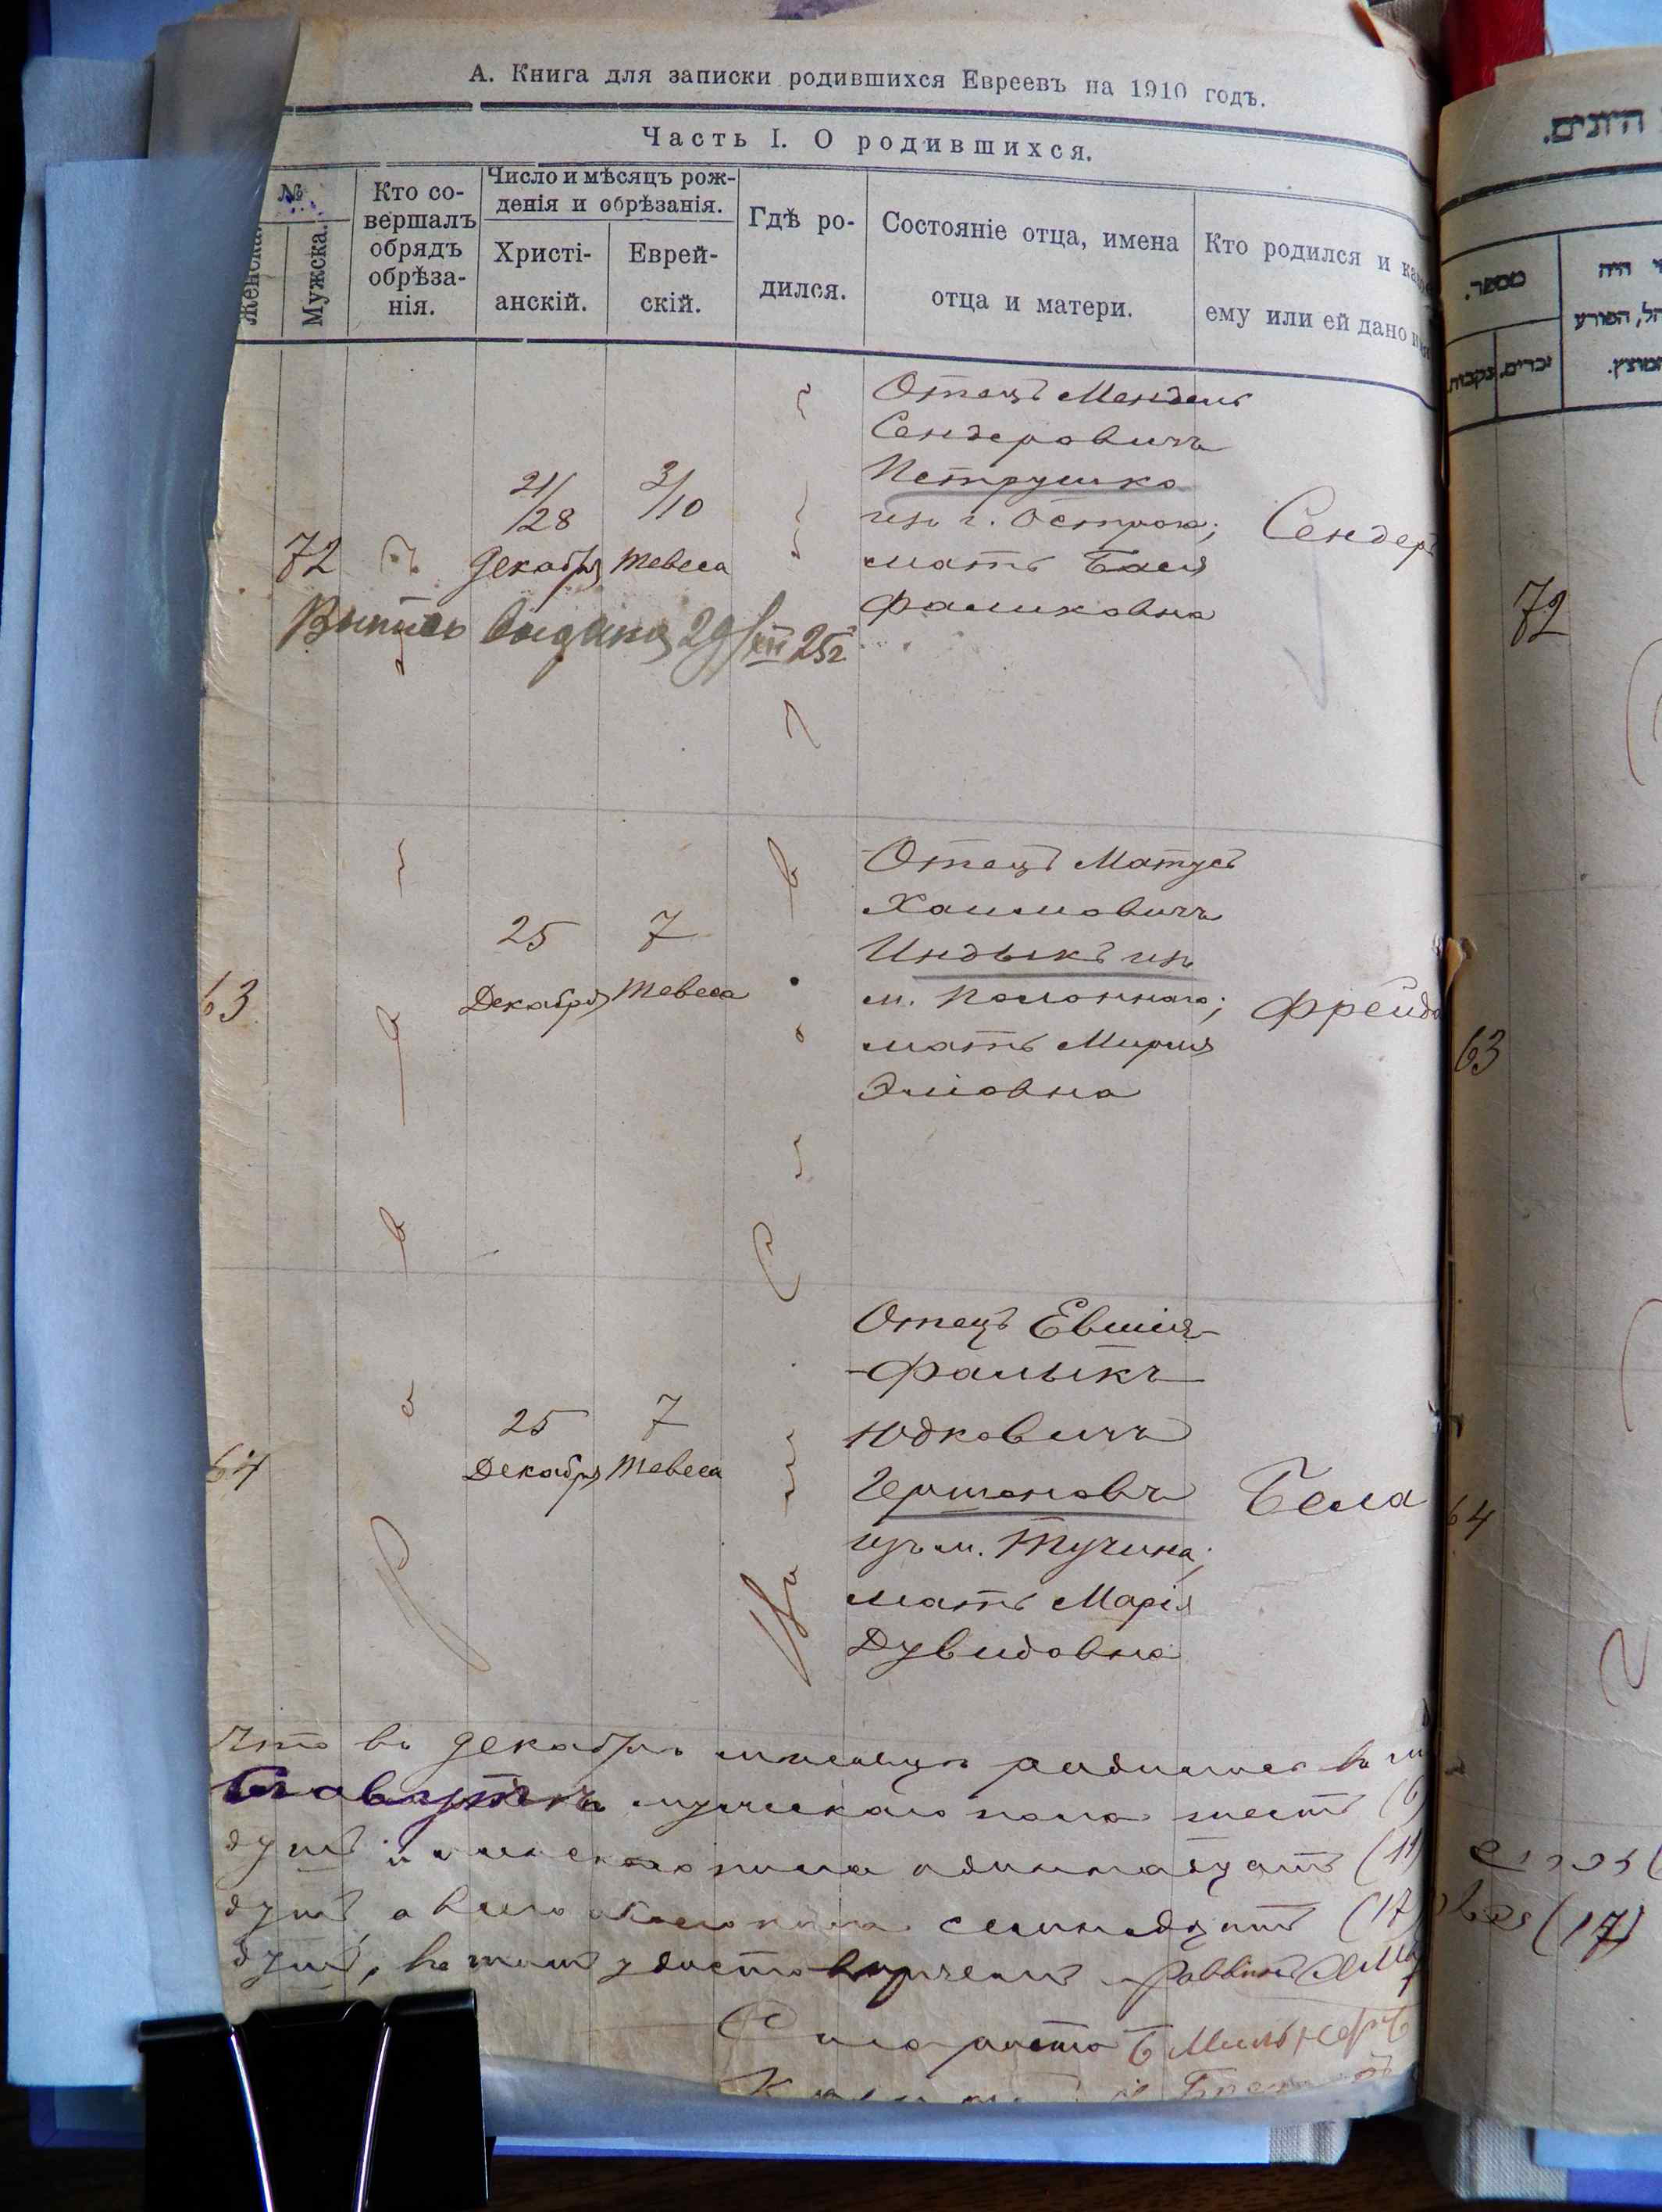 А. Книга для записки родившихся Евреевъ на 1910 годъ.
Часть I. О родившихся.
№
Женска.
Мужска.
Кто со-
вершалъ
обрядъ
обрѣза-
нія.
Число и мѣсяцъ рож-
денія и обрѣзанія.
Христі-
анскій.
Еврей-
скій.
Гдѣ ро-
дился.
Состояніе отца, имена
отца и матери.
Кто родился и како
ему или ей дано
72
21/
/28
Декабря
3/
/10
Тевеса
Отецъ Мендель
Сендеровичъ
Петрушка
изъ г. Острога;
мать Бася
Фаликовна
Сендеръ
Выпись выдана 29/XII 25 г.
63
25
Декабря
7
Тевеса
Отецъ Матусъ
Хаимовичъ
Индыкъ изъ
м. Полоннаго;
мать Мирля
Эліовна
Фрейда
64
25
Декабря
7
Тевеса
Отецъ Евшія-
-Фалыкъ
Юдковичъ
Гершоновъ
изъ м. Тучина;
мать Марія
Дувидовна
Бела
Что въ декабрѣ мѣсяцѣ родилось въ м.
Славутѣ мужскаго пола шесть (6)
душъ и женскаго пола одиннадцать (11)
душъ, а всего обоего пола семнадцать (17)
душъ, въ томъ удостовѣряемъ Раввинъ
Староста Б Мильнеръ
היונים.
מספר.
זכרים.
נקבות.
מי היה
המוהל, הפורע
והמוצץ.
72
63
64
(17)